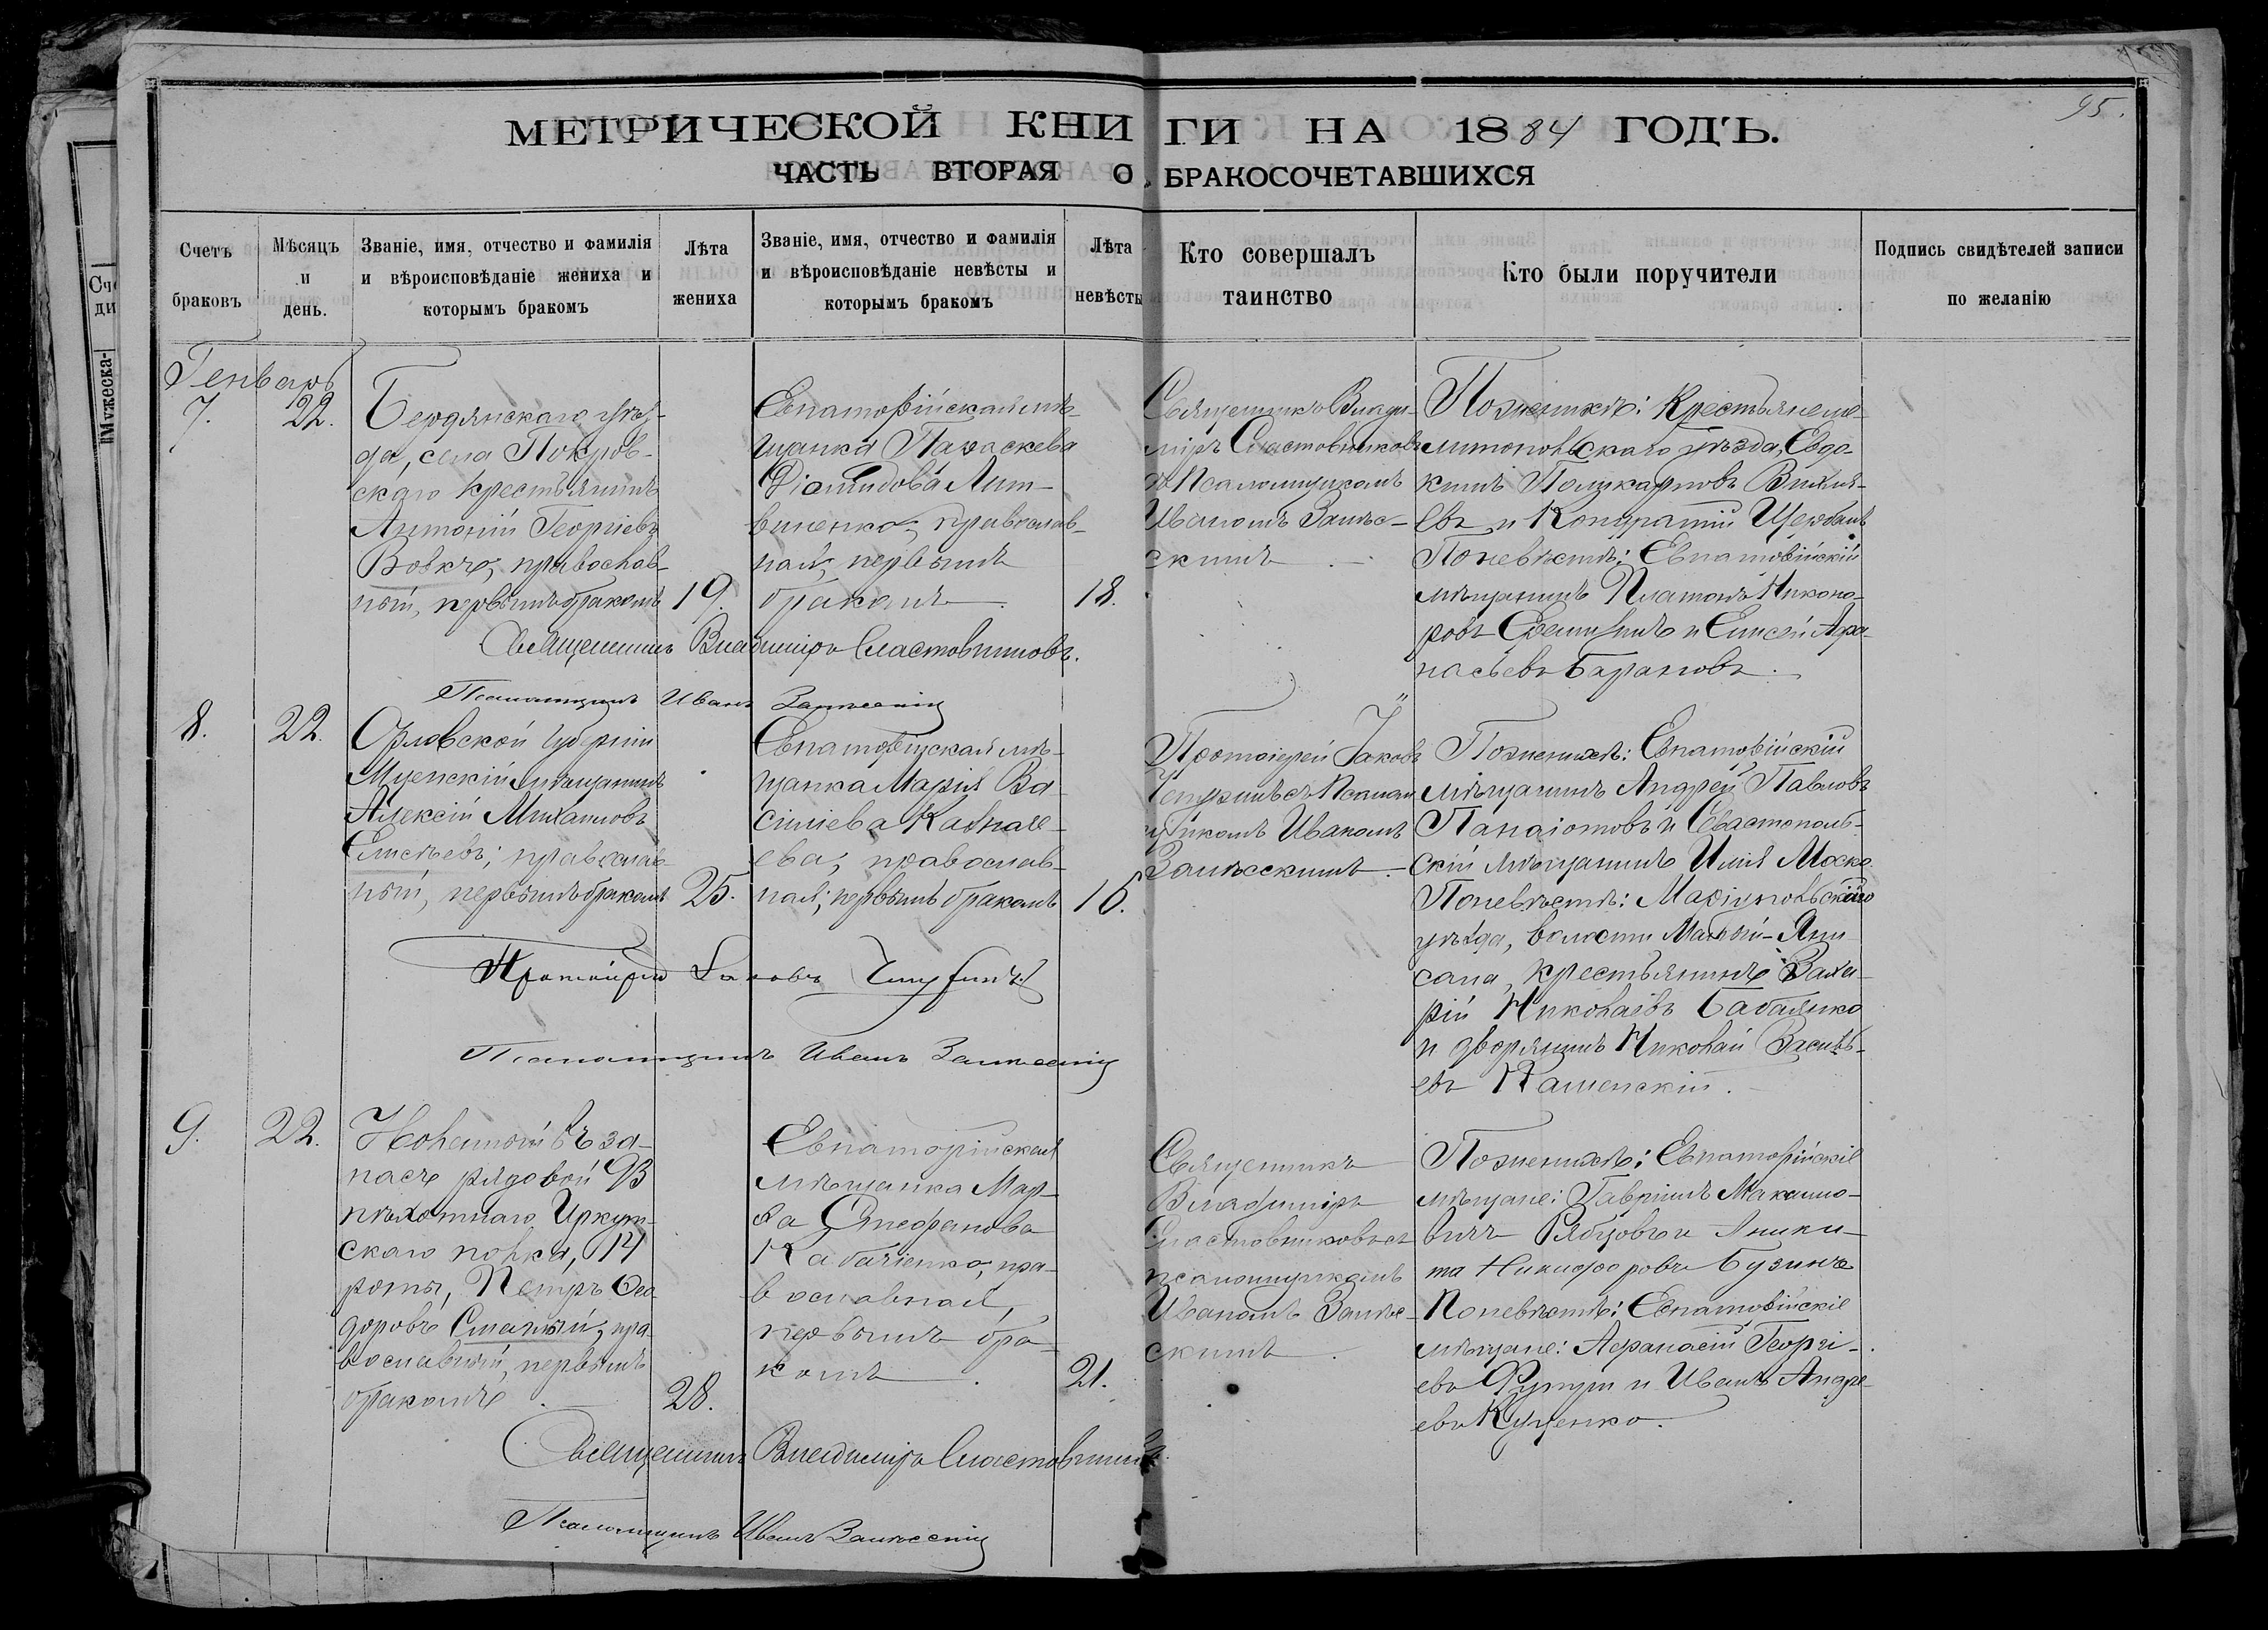 95.
МЕТРИЧЕСКОЙ КНИГИ НА 1884 ГОДЪ.
ЧАСТЬ ВТОРАЯ О БРАКОСОЧЕТАВШИХСЯ
Счетъ браковъ
Мѣсяцъ и день.
Званіе, имя, отчество и фамилія
и вѣроисповѣданіе жениха и
которымъ бракомъ
Лѣта жениха
Званіе, имя, отчество и фамилія
и вѣроисповѣданіе невѣсты и
которымъ бракомъ
Лѣта невѣсты
Кто совершалъ
таинство
Кто были поручители
Подпись свидѣтелей записи
по желанію
Генварь
7.
22.
Бердянскаго уѣз-
да, села Покров-
скаго крестьянинъ
Антоній Георгіевъ
Вовкъ, православ-
ный, первымъ бракомъ
19.
Евпаторійская мѣ-
щанка Параскева
Діомидова Лит-
виненко, православ-
ная, первымъ
бракомъ
18.
Священникъ Влади-
міръ Сластовниковъ
съ Псаломщикомъ
Иваномъ Залѣс-
скимъ
По женихѣ: Крестьяне ме-
литопольскаго уѣзда, Евдо-
кимъ Поликарповъ
евъ и Кондратій Щербань
По невѣстѣ: Евпаторійскій
мѣщанинъ Платонъ Никано-
ровъ и Елисей Афа-
насьевъ Барановъ.
Священникъ Владиміръ Сластовниковъ.
Псаломщикъ Иванъ Залѣсскій
8.
22.
Орловской губерніи
Мценскій мѣщанинъ
Алексій Михаиловъ
Елисѣевъ, православ-
ный, первымъ бракомъ
25.
Евпаторійская мѣ-
щанка Марія Ва-
силіева Карпае-
ева, православ-
ная, первымъ бракомъ
16.
Протоіерей Іаковъ
Чепуринъ съ Псалом-
щикомъ Иваномъ
Залѣсскимъ
По женихѣ: Евпаторійскій
мѣщанинъ Андрей Павловъ
Панаіотовъ и Севастополь-
скій мѣщанинъ Илія Моско
По невѣстѣ: Маріупольскаго
уѣзда, волости Малый-Яни-
сала, крестьянинъ Заха-
рій Николаевъ
и дворянинъ Николай Василь-
евъ Каменскій.
Протоіерей Іаковъ Чепуринъ
Псаломщикъ Иванъ Залѣсскій
9.
22.
Уволенный въ за-
пасъ рядовой 93
пѣхотнаго Иркут-
скаго полка, 14
роты, Петръ Ѳео-
доровъ Смалый, пра-
вославный, первымъ
бракомъ
28.
Евпаторійская
мѣщанка Мар-
ѳа Стефанова
Кабаченко, пра-
вославная,
первымъ бра-
комъ
21.
Священникъ
Владиміръ
Сластовниковъ съ
псаломщикомъ
Иваномъ Залѣс-
скимъ
По женихѣ: Евпаторійскіе
мѣщане: Гавріилъ Макаимо-
вичъ Рябцовъ и Аники-
та Никифоровъ Бузинъ
По невѣстѣ: Евпаторійскіе
мѣщане: Афанасій Георгі-
евъ и Иванъ Андре-
евъ Куценко.
Священникъ Владиміръ Сластовниковъ
Псаломщикъ Иванъ Залѣсскій